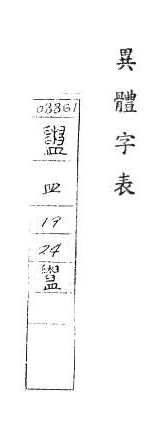 異體字表
03361
皿
19
24